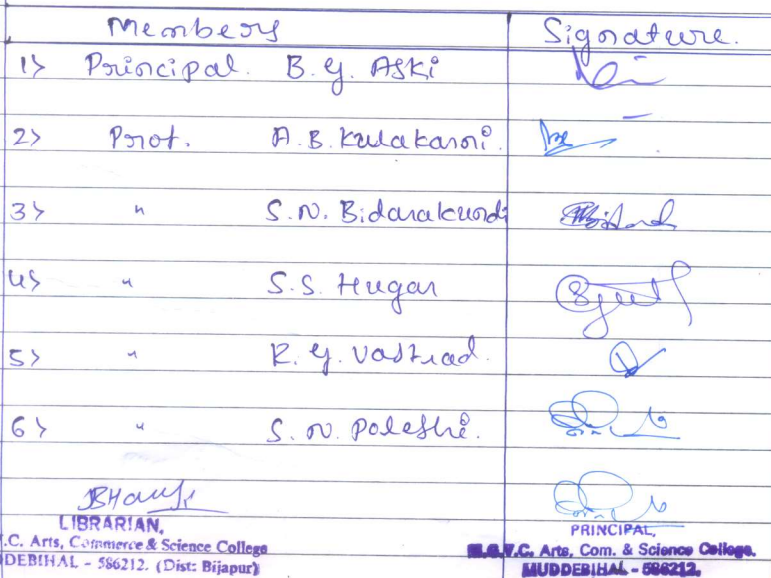 Members Signature.
1> Principal. B. G. ASKi
2> Prof. A. B. Kulakarni.
3> " S. N. Bidarakundi
4> " S. S. Hugar
5> " R. G. Vastrad.
6> " S. N. Poleshi.
LIBRARIAN,
.C. Arts, Commerce & Science College
DEBIHAL - 586212. (Dist: Bijapur)
PRINCIPAL,
M.G.V.C. Arts, Com. & Science College.
MUDDEBIHAL - 586212.